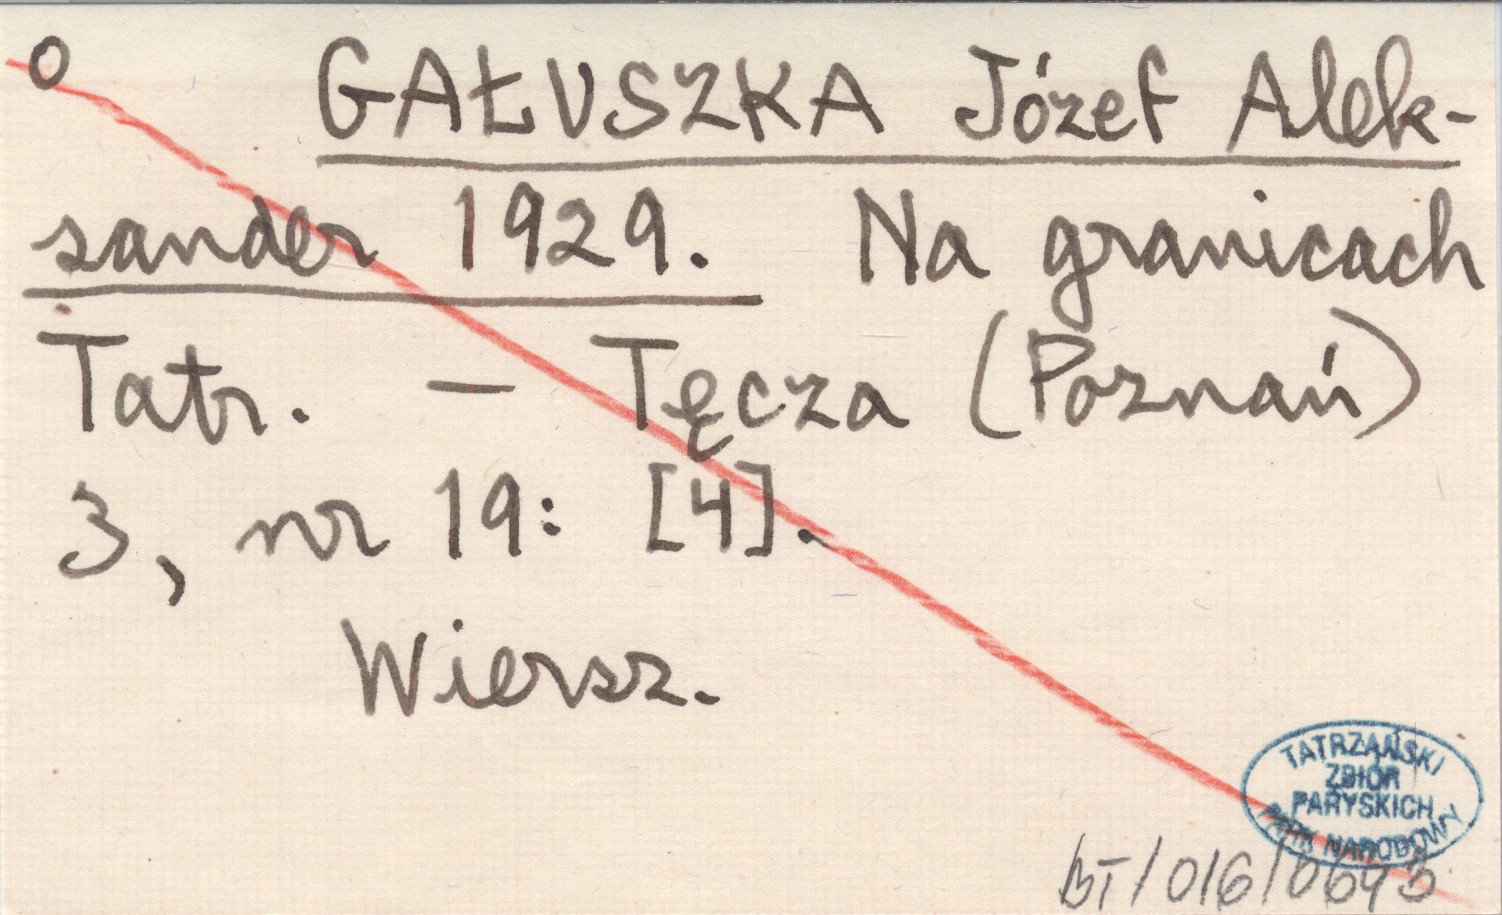 O GAŁUSZKA Józef Alek-
sander 1929. Na granicach
Tatr. – Tęcza (Poznań)
3, nr 19: [4].
Wiersz.
TATRZAŃSKI
ZBIÓR
PARYSKICH
PARK NARODOWY
BT/016/0643